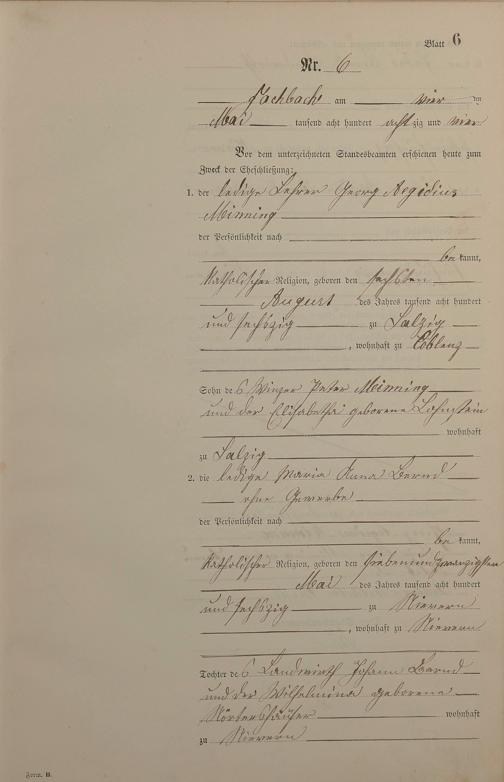 Blatt 6
Nr. 6
Fachbach am vier ten
Mai tausend acht hundert achtzig und vier
Vor dem unterzeichneten Standesbeamten erschienen heute zum
Zweck der Eheschließung:
1. der ledige Lehrer Georg Aegidius
Minning
der Persönlichkeit nach
bekannt,
katholischer Religion, geboren den sechsten
August des Jahres tausend acht hundert
und sechszig zu Salzig
, wohnhaft zu Coblenz
Sohn des Winzer Peter Minning
und der Elisabetha geborene Lahnstein
wohnhaft
zu Salzig
2. die ledige Maria Anna Bernd
ohne Gewerbe
der Persönlichkeit nach
bekannt,
katholischer Religion, geboren den siebenundzwanzigsten
Mai des Jahres tausend acht hundert
und sechszig zu Nievern
, wohnhaft zu Nievern
Tochter des Landwirth Johann Bernd
und der Wilhelmina geborene
Nörtershäuser wohnhaft
zu Nievern
Form. B.